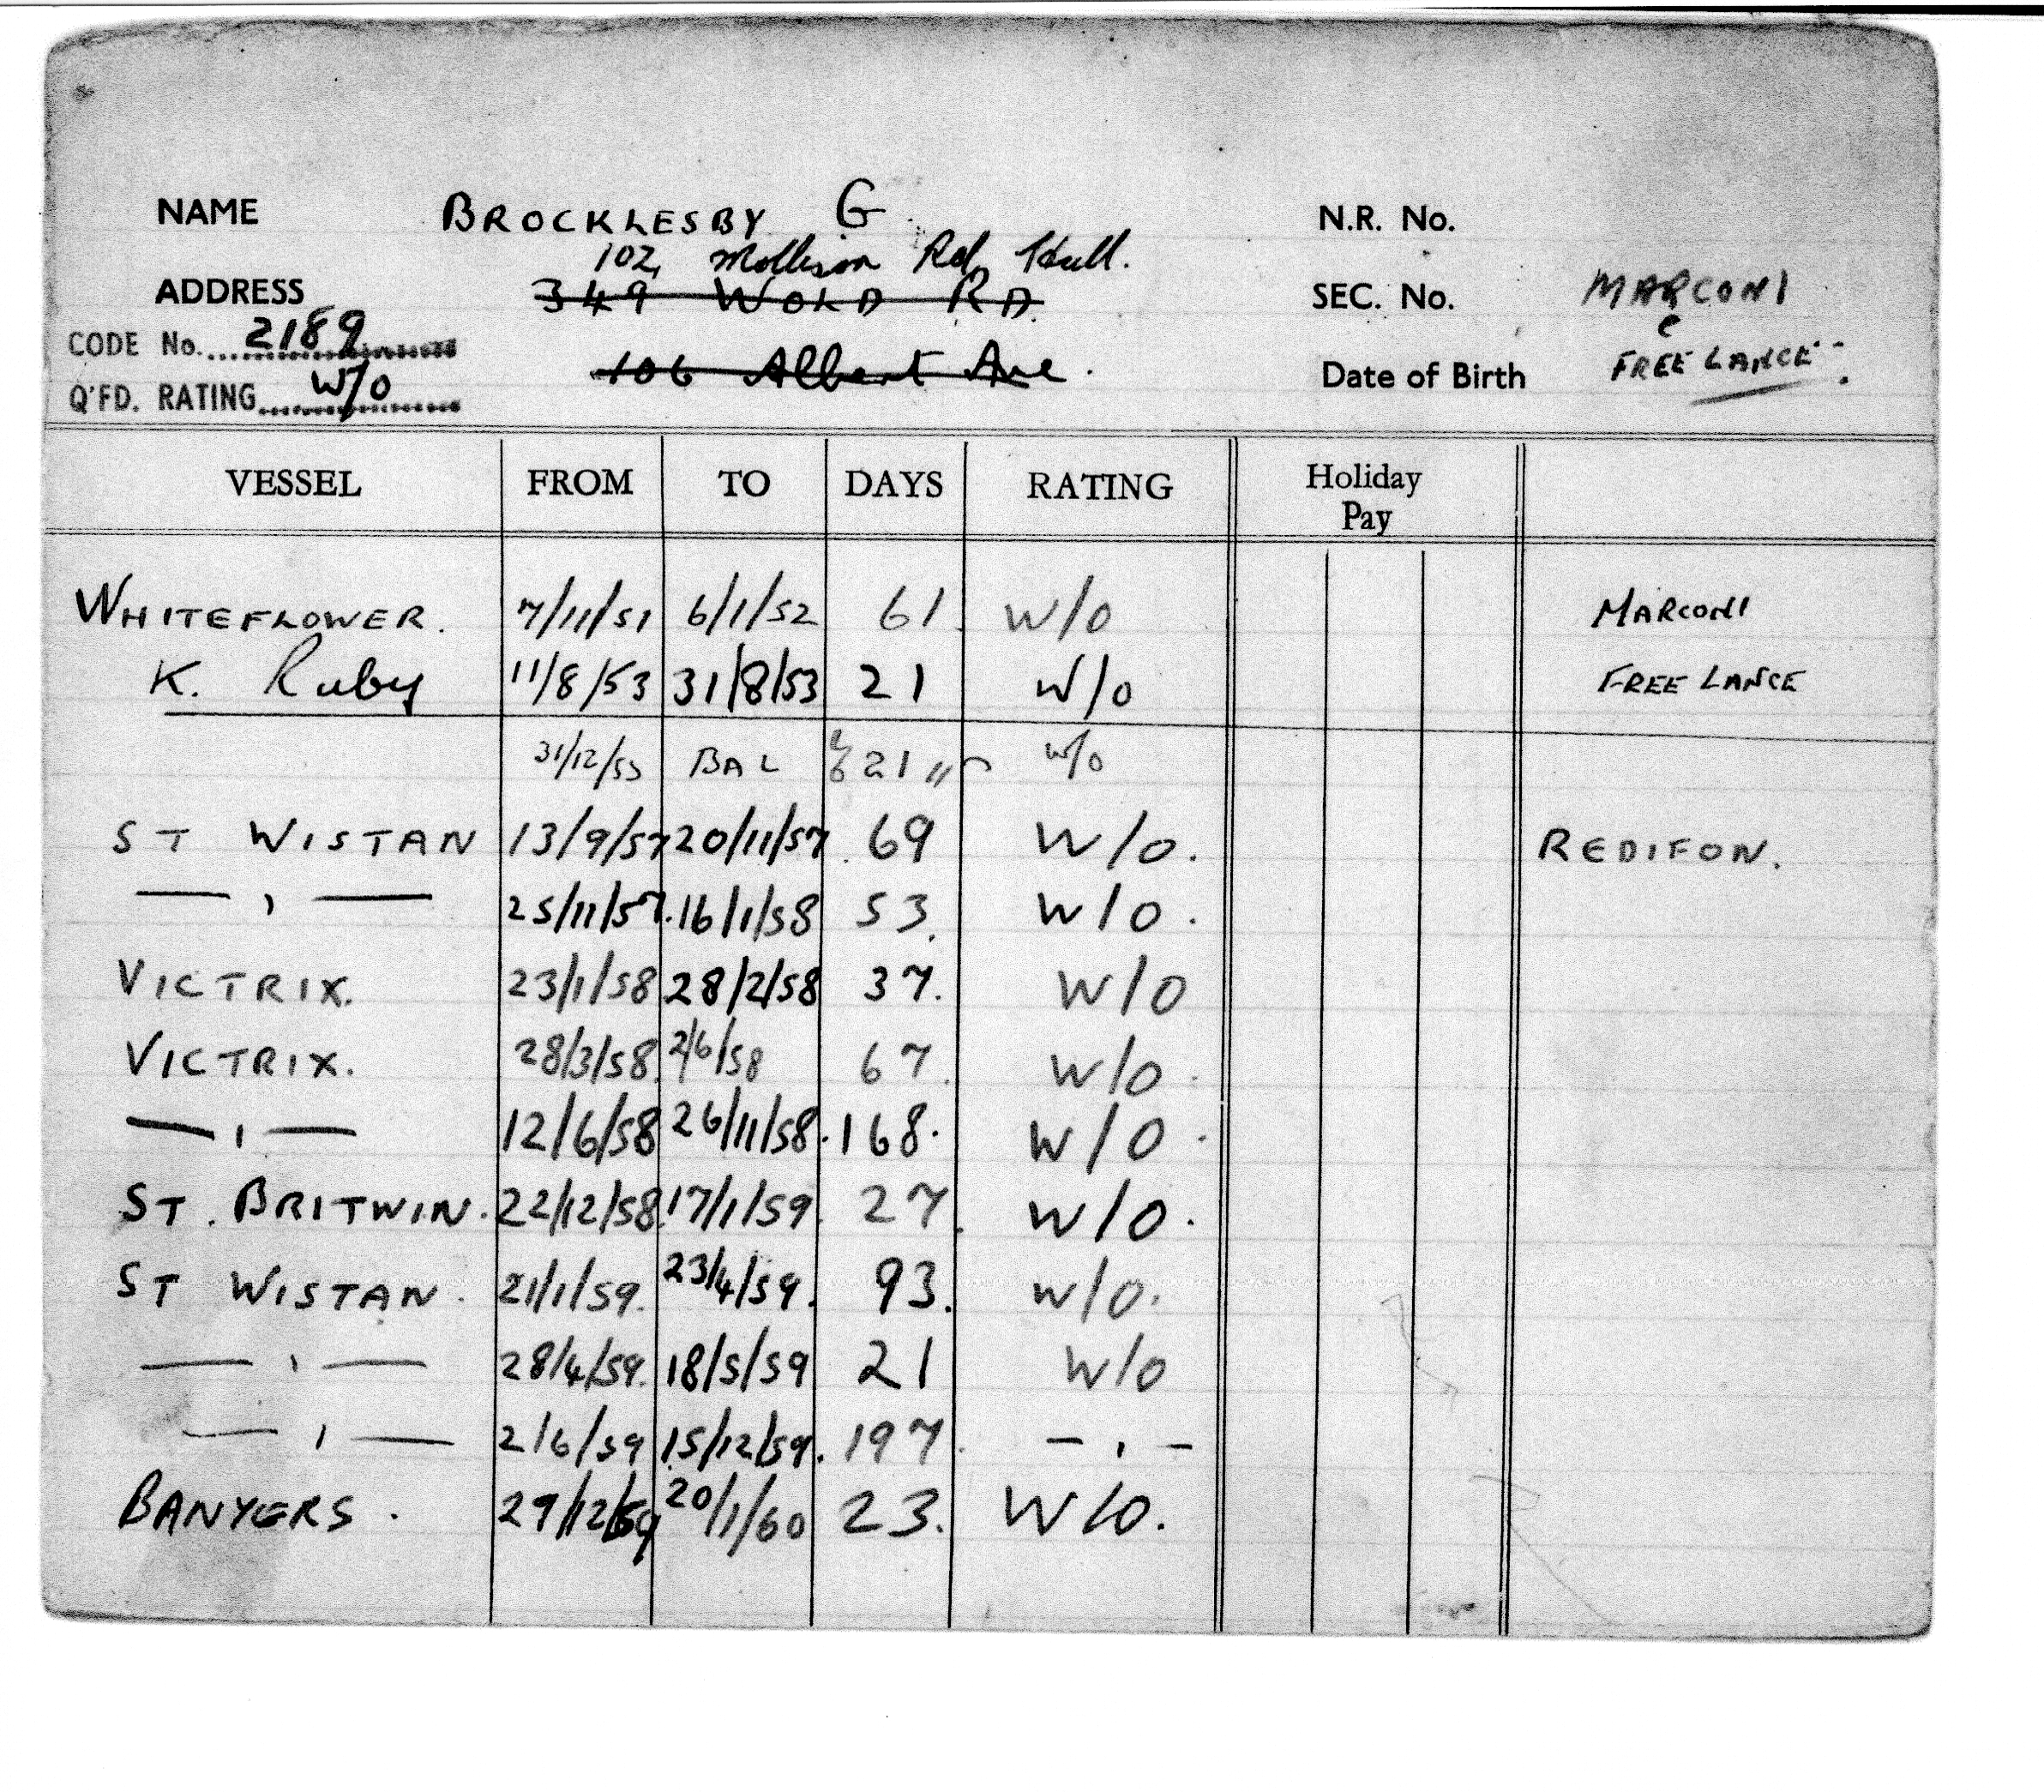 NAME BROCKLESBY G. N.R. No.
102, Mollison Rd, Hull.
ADDRESS 349 WOLD RD. SEC. No. MARCONI
&
CODE No. 2189 106 Albert Ave. Date of Birth FREE LANCE
Q'FD. RATING W/O
VESSEL FROM TO DAYS RATING Holiday Pay
WHITEFLOWER. 7/11/51 6/1/52 61 W/O MARCONI
K. Ruby 11/8/53 31/8/53 21 W/O FREE LANCE
31/12/53 BAL 21 " W/O
ST WISTAN 13/9/57 20/11/57. 69 W/O. REDIFON.
— , — 25/11/57. 16/1/58 53. W/O.
VICTRIX. 23/1/58 28/2/58 37. W/O
VICTRIX. 28/3/58. 2/6/58 67. W/O.
— , — 12/6/58 26/11/58. 168. W/O.
ST. BRITWIN. 22/12/58. 17/1/59. 27. W/O.
ST WISTAN. 21/1/59. 23/4/59. 93. W/O.
— , — 28/4/59. 18/5/59 21 W/O
— , — 2/6/59 15/12/59. 197. — , —
BANYERS. 29/12/59 20/1/60 23. W/O.